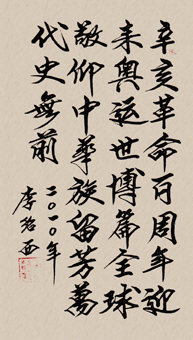 辛亥革命百周年迎
来奥运世博篇全球
敬仰中華族留芳萬
代史無前
二〇一〇年
李